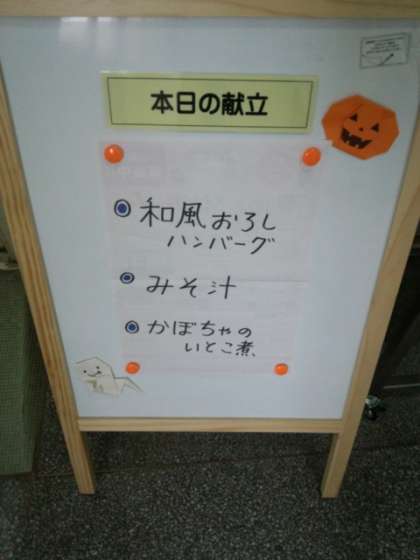 本日の献立
和風おろし
ハンバーグ
みそ汁
かぼちゃの
いとこ煮